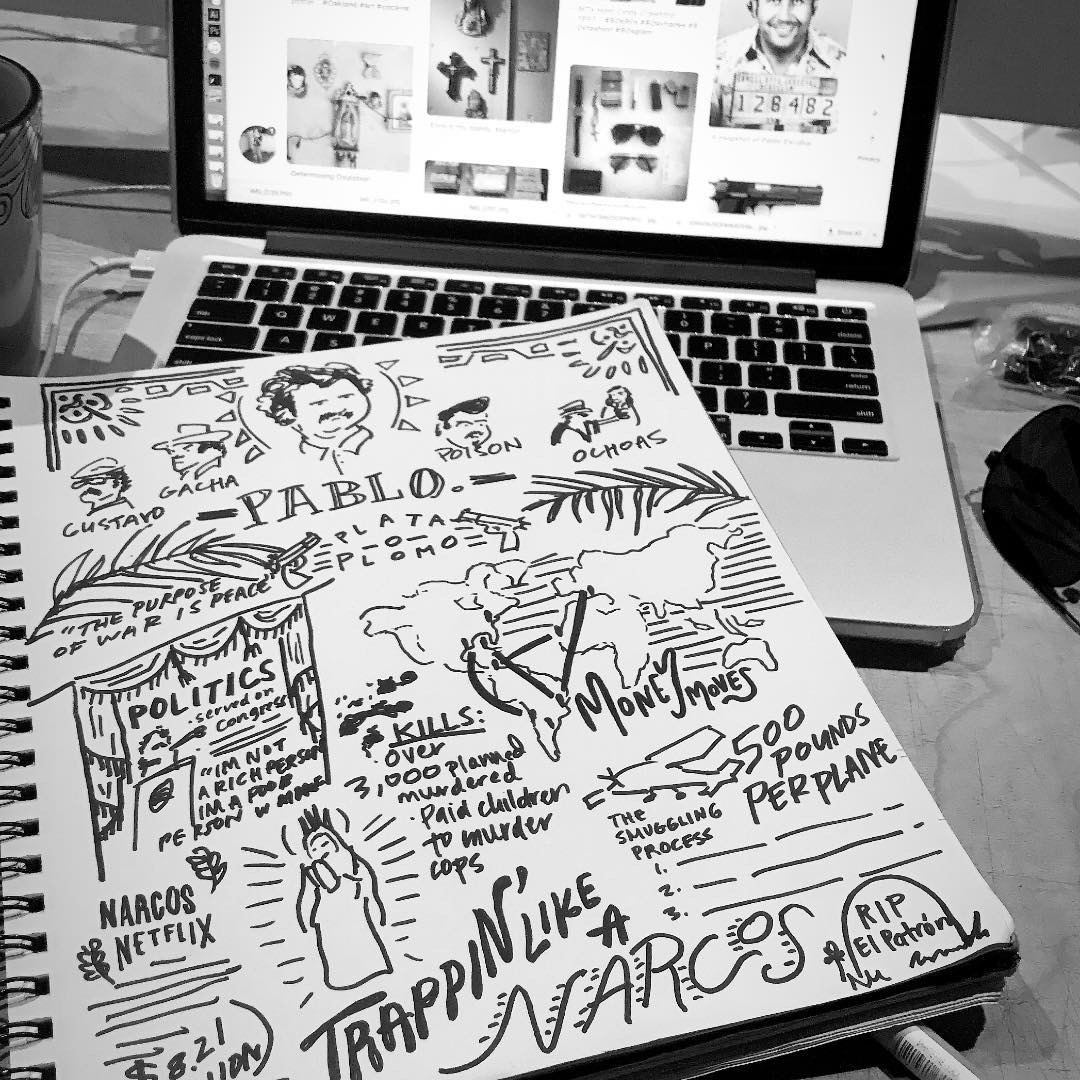 #Oakland #Art #
Determining Oxytation
128482
Ai
tab
caps lock
shift
Q W E R
A S
P
delete
return
shift
GUSTAVO
GACHA
-PABLO.-
POISON
OCHOAS
PLATA
-O-
PLOMO
"THE PURPOSE
OF WAR IS PEACE"
POLITICS
served on
Congress
"IM NOT
A RICH PERSON
IM A POOR
PERSON W MONEY
KILLS:
over
3,000 planned
murdered
· Paid children
to murder
cops
MONEY MOVES
500
POUNDS
PER PLANE
THE
SMUGGLING
PROCESS
1.
2.
3.
NARCOS
NETFLIX
$8.21
TRAPPIN' LIKE
A
NARCOS
RIP
El Patrón